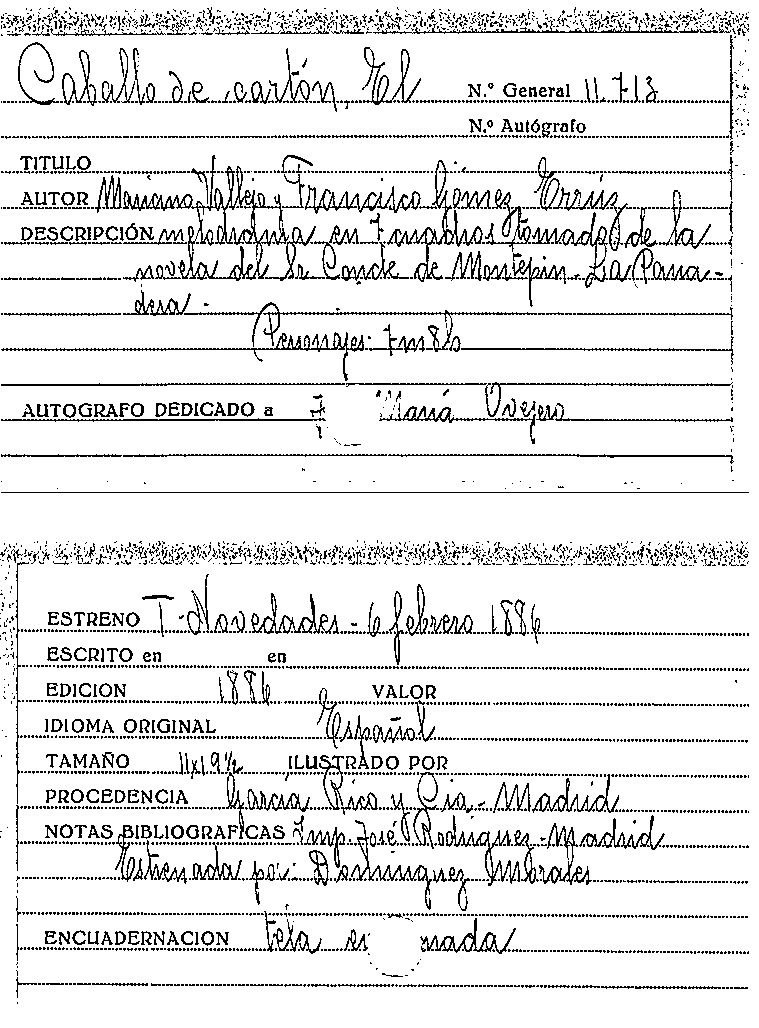 Caballo de cartón, El N.º General 11.713
N.º Autógrafo
TITULO
AUTOR Mariano Vallejo y Francisco Gómez Erruz
DESCRIPCIÓN melodrama en 7 cuadros (tomado) de la
novela del Sr Conde de Montepin - La Pana-
dera -
Personajes: 7m 8h
AUTOGRAFO DEDICADO a Maria Ovejero
ESTRENO T - Novedades - 6 febrero 1886
ESCRITO en en
EDICION 1886 VALOR
IDIOMA ORIGINAL Español
TAMAÑO 11x19½ ILUSTRADO POR
PROCEDENCIA García Rico y Cia - Madrid
NOTAS BIBLIOGRAFICAS Imp. José Rodriguez - Madrid
Estrenada por: Dominguez Morales
ENCUADERNACION tela